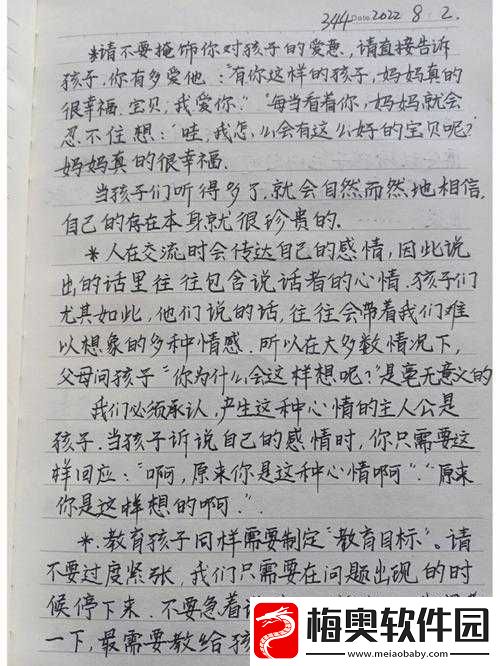 344 Date 2022 8. 2.
*请不要掩饰你对孩子的爱意,请直接告诉
孩子,你有多爱他:"有你这样的孩子,妈妈真的
很幸福.宝贝,我爱你.""每当看着你,妈妈就会
忍不住想:"哇,我怎么会有这么好的宝贝呢?
妈妈真的很幸福.
当孩子们听得多了,就会自然而然地相信,
自己的存在本身就很珍贵的.
*人在交流时会传达自己的感情,因此说
出的话里往往包含说话者的心情.孩子们
尤其如此,他们说的话,往往会带着我们难
以想象的多种情感.所以在大多数情况下,
父母问孩子"你为什么会这样想呢?"是毫无意义的
我们必须承认,产生这种心情的主人公是
孩子.当孩子诉说自己的感情时,你只需要这
样回应:"啊,原来你是这种心情啊"."原来
你是这样想的啊".
*.教育孩子同样需要制定"教育目标"。请
不要过度紧张,我们只需要在问题出现的时
候停下来.不要急着
一下,最需要教给孩
梅奥软件园
www.meiaobaby.com